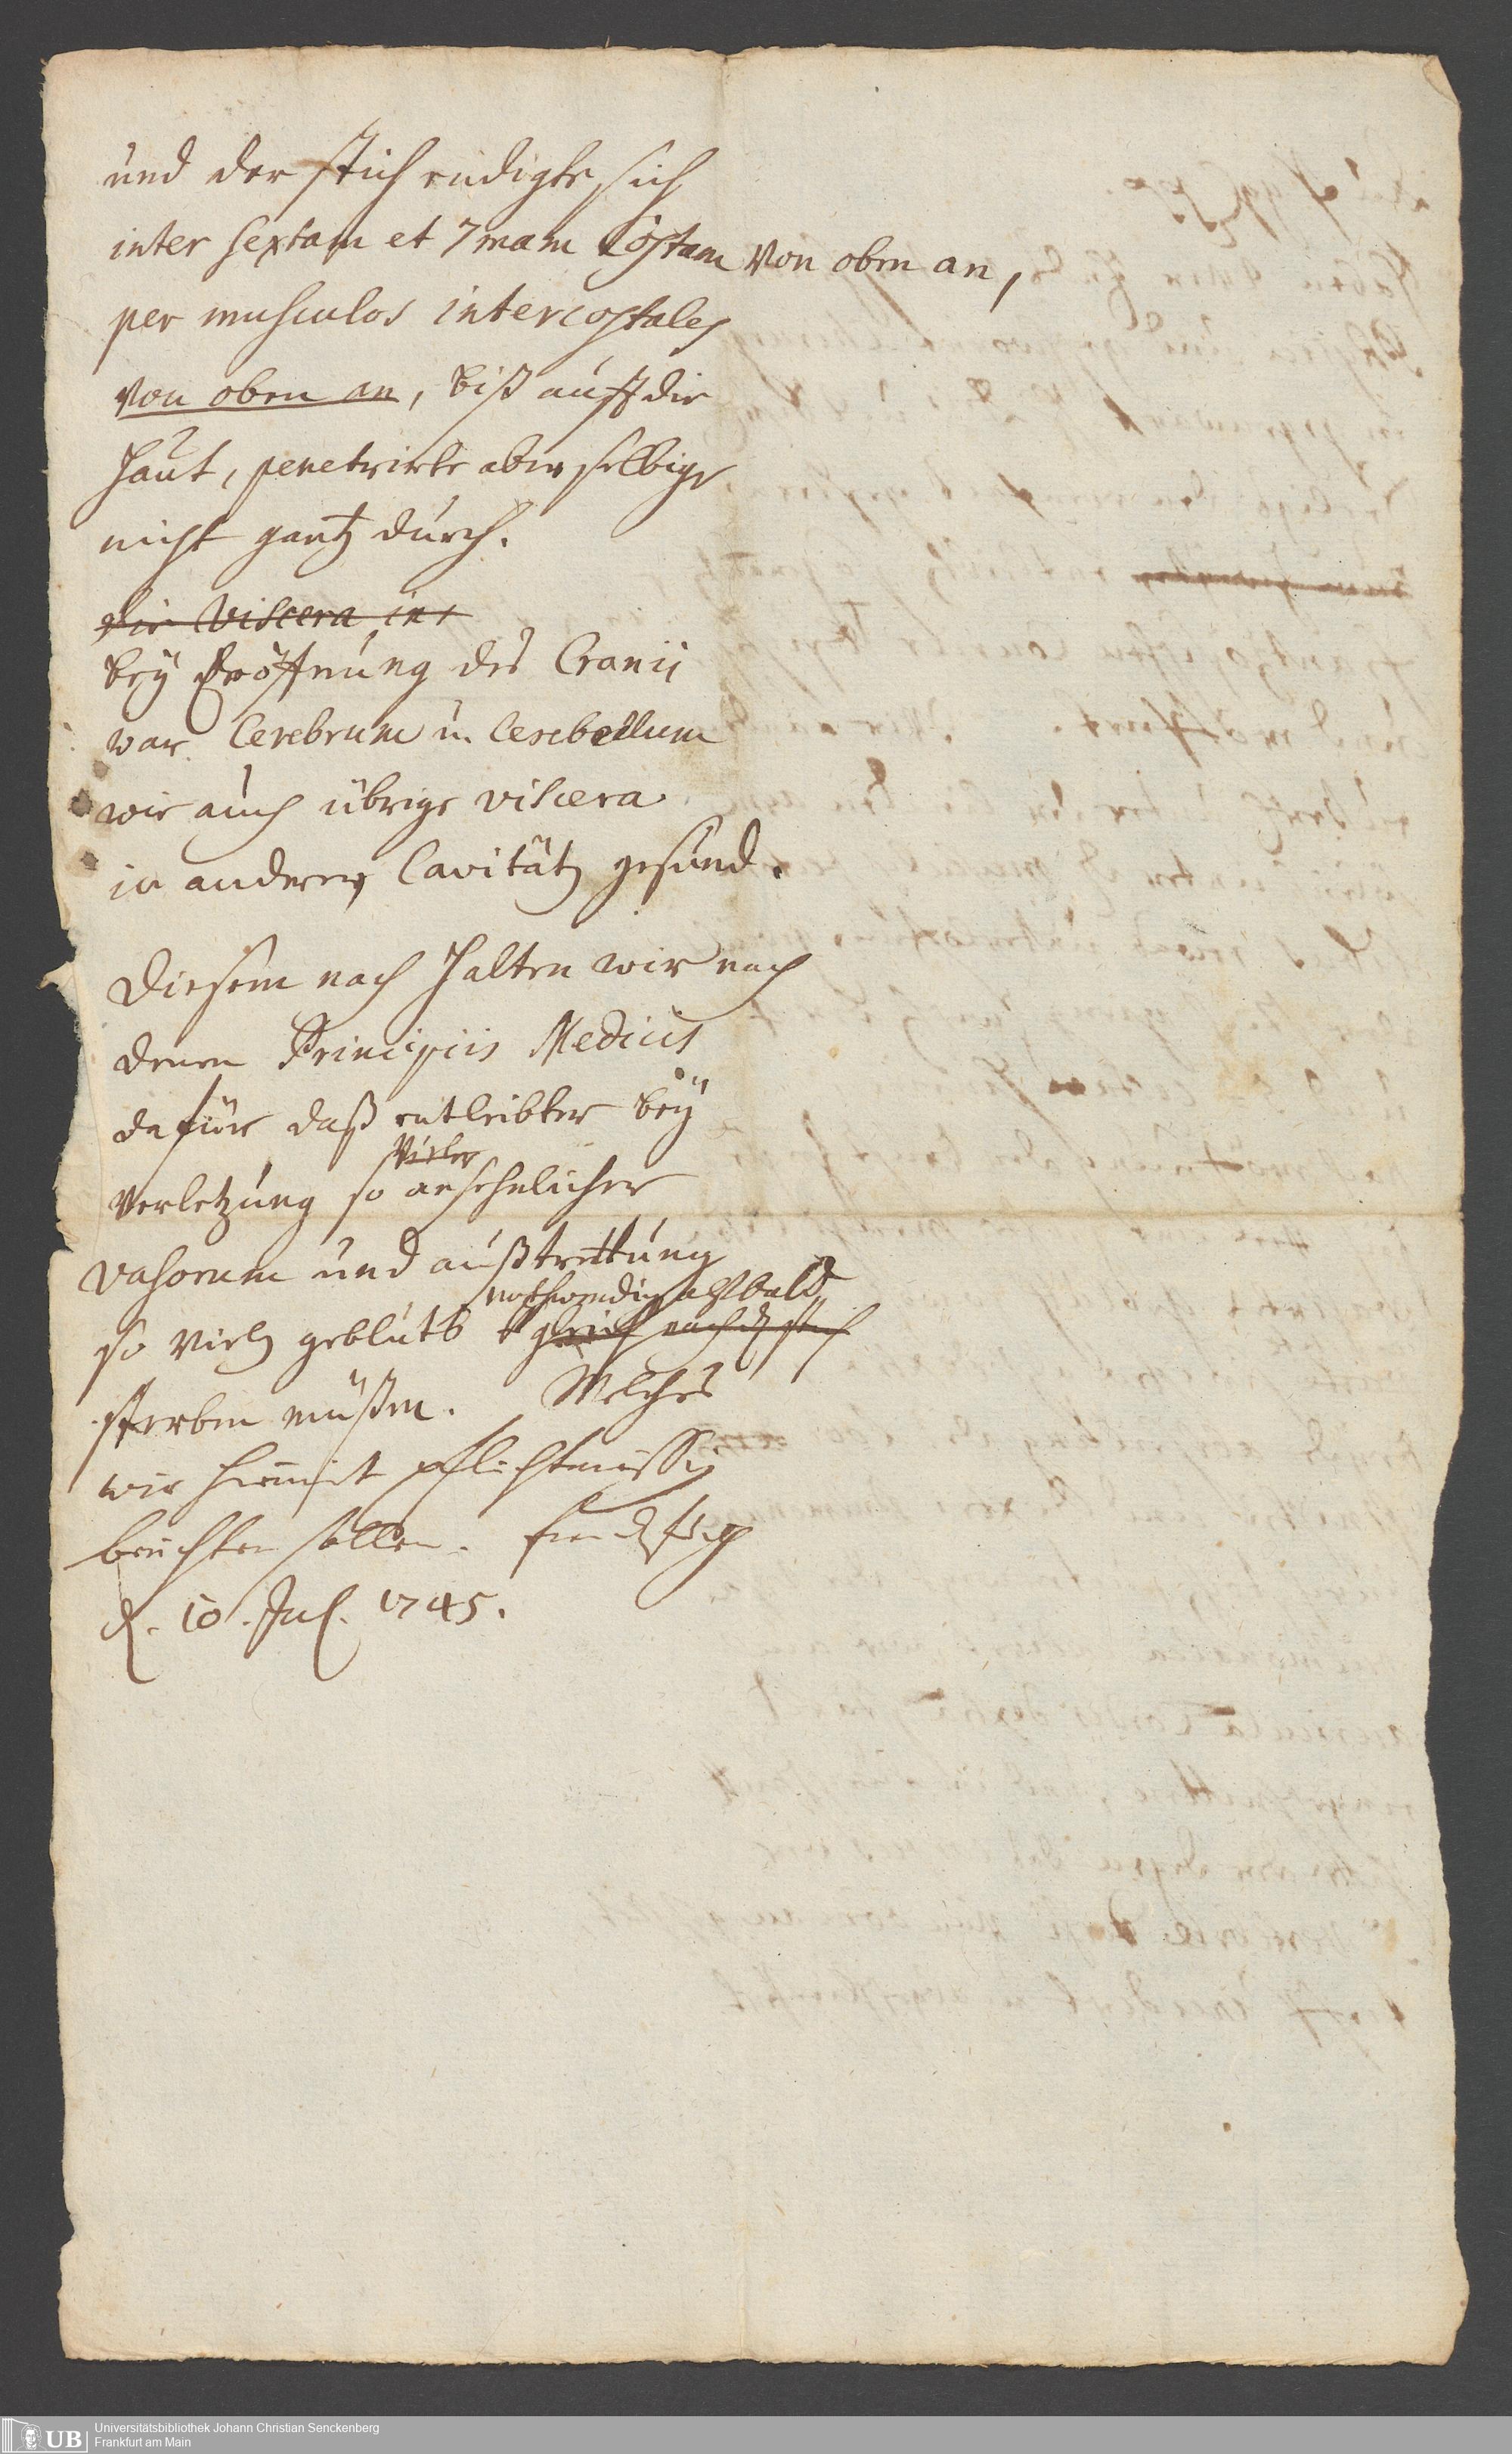 und der stich endigte sich
inter sextam et 7mam Costam von oben an,
per musculos intercostales
von oben an, biß auff die
Haut, penetrirte aber selbige
nicht gantz durch.
die viscera in
bey Eröffnung des Cranii
war Cerebrum u. Cerebellum
wie auch übrige viscera
in anderen Cavitäten gesund.
Diesem nach halten wir nach
denen Principiis Medicis
dafür daß entleibter bey
vieler
verletzung so ansehnlicher
vasorum und außtrettung
nothwendig alsbald
so vielen geblüts gleich nach dem stich
sterben müßen. Welches
wir hiemit pflichtmässig
berichten sollen.
d. 10. Jul. 1745.
Universitätsbibliothek Johann Christian Senckenberg
Frankfurt am Main
UB